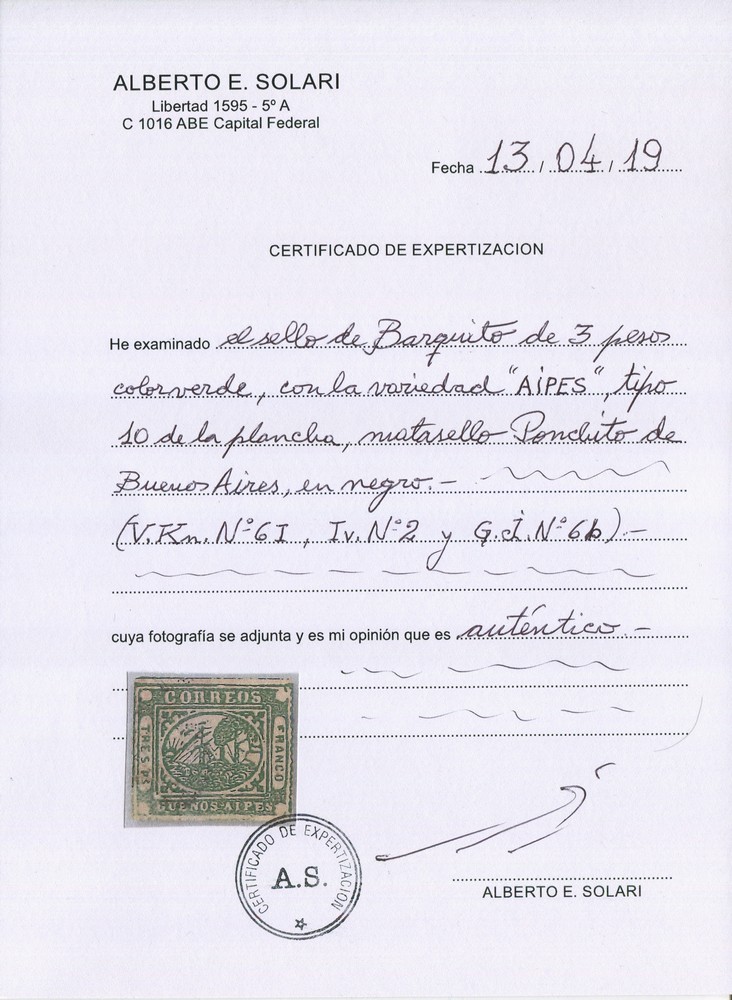 ALBERTO E. SOLARI
Libertad 1595 - 5º A
C 1016 ABE Capital Federal
Fecha 13 / 04 / 19
CERTIFICADO DE EXPERTIZACION
He examinado el sello de Barquito de 3 pesos
color verde, con la variedad "AIPES", tipo
10 de la plancha, matasello Ponchito de
Buenos Aires, en negro.-
(V.Kn. Nº 6I, Iv. Nº 2 y G.J. Nº 6b)-
cuya fotografía se adjunta y es mi opinión que es auténtico.-
CORREOS
TRES Ps
FRANCO
BUENOS-AIPES
CERTIFICADO DE EXPERTIZACION
A.S.
ALBERTO E. SOLARI